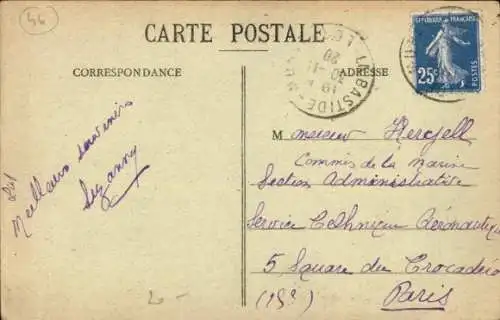 46
CARTE POSTALE
CORRESPONDANCE
ADRESSE
REPUBLIQUE FRANÇAISE
25c
POSTES
LABASTIDE
Meilleurs souvenirs
Suzanny
Monsieur Hergell
Commis de la marine
Section Administrative
Service Technique Aéronautique
5 Square du Trocadéro
Paris